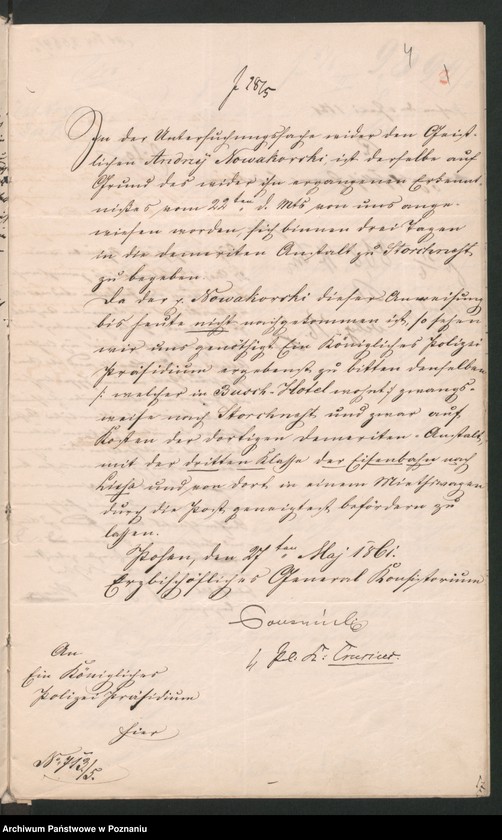 4
In der Untersuchungssache wider den Geist-
lichen Andrzej Nowakowski, ist derselbe auf
Grund des wider ihn ergangenen Erkennt-
nißes vom 22ten d. Mts von uns ange-
wiesen worden, sich binnen drei Tagen
in die Demeriten Anstalt zu Storchnest
zu begeben.
Da der p. Nowakowski dieser Anweisung
bis heute nicht nachgekommen ist, so sehen
wir uns genöthigt Ein Königliches Polizei
Präsidium ergebenst zu bitten denselben
/: welcher in Busch-Hotel wohnt :/ zwangs-
weise nach Storchnest und zwar auf
Kosten der dortigen Demeriten-Anstalt,
mit der dritten Klasse der Eisenbahn nach
und von dort in einem Miethswagen
durch die Post geneigtest befördern zu
lassen.
Posen, den 27ten Maj 1861.
Erzbischöfliches General Konsistorium
An
Ein Königliches
Polizei Präsidium
hier
No 713/5.
Archiwum Państwowe w Poznaniu